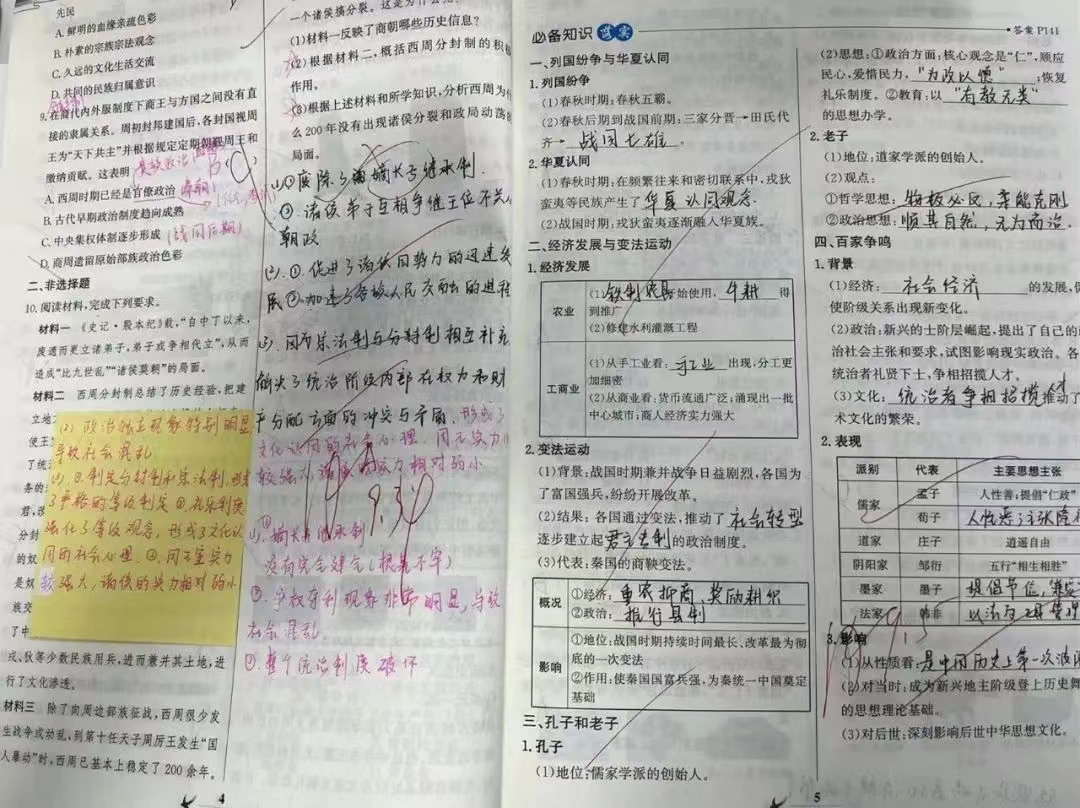 先民
A. 鲜明的血缘亲疏色彩
B. 朴素的宗族宗法观念
C. 久远的文化生活交流
D. 共同的民族归属意识
9. 在商代内外服制度下商王与方国之间没有直
接的隶属关系。周初封邦建国后，各封国视周
王为“天下共主”并根据规定定期朝觐周王和
缴纳贡赋。这表明
A. 西周时期已经是官僚政治
B. 古代早期政治制度趋向成熟
C. 中央集权体制逐步形成（战国后期）
D. 商周遗留原始部族政治色彩
二、非选择题
10. 阅读材料，完成下列要求。
材料一 《史记·殷本纪》载，“自中丁以来，
废适而更立诸弟子，弟子或争相代立”，从而
造成“比九世乱”“诸侯莫朝”的局面。
材料二 西周分封制总结了历史经验，把建
(2) 政治独立现象特别明显
导致社会混乱
(3) ①制定分封制和宗法制，形成
了严格的等级制度 ②礼乐制度
强化了等级观念，形成了文化认
同的社会心理 ③周王室实力
较强大，诸侯的实力相对弱小
戎、狄等少数民族用兵，进而兼并其土地，进
行了文化渗透。
材料三 除了向周边部族征战，西周很少发
生战争或动乱，到第十任天子周厉王发生“国
人暴动”时，西周已基本上稳定了 200 余年。
4
一个诸侯搞分裂。这是为什么
(1)材料一反映了商朝哪些历史信息？
(2)根据材料二，概括西周分封制的积极
作用。
(3)根据上述材料和所学知识，分析西周为什
么 200 年没有出现诸侯分裂和政局动荡的
局面。
(1) ①废除了嫡长子继承制.
②诸侯弟子互相争继王位不关心
朝政
(2). ①. 促进了诸侯国势力的迅速发
展 ②加速了各族人民交融的进程
(3). 周的宗法制与分封制相互补充
解决了统治阶级内部在权力和财
产分配方面的冲突与矛盾. 形成了
文化认同的社会心理. 周王实力
较强大 诸侯的实力相对弱小
①嫡长子继承制
没有完全建立(根基不牢)
②. 争权夺利现象非常明显，导致
社会混乱
③. 整个统治制度破坏
必备知识 落实
·答案 P141
一、列国纷争与华夏认同
1. 列国纷争
(1)春秋时期：春秋五霸。
(2)春秋后期到战国前期：三家分晋→田氏代
齐→ 战国七雄 。
2. 华夏认同
(1)春秋时期：在频繁往来和密切联系中，戎狄
蛮夷等民族产生了 华夏认同观念.
(2)战国时期：戎狄蛮夷逐渐融入华夏族。
二、经济发展与变法运动
1. 经济发展
农业
(1) 铁制农具 开始使用， 牛耕 得
到推广
(2)修建水利灌溉工程
工商业
(1)从手工业看： 手工业 出现，分工更
加细密
(2)从商业看：货币流通广泛；涌现出一批
中心城市；商人经济实力强大
2. 变法运动
(1)背景：战国时期兼并战争日益剧烈，各国为
了富国强兵，纷纷开展改革。
(2)结果：各国通过变法，推动了 社会转型
逐步建立起 君主专制 的政治制度。
(3)代表：秦国的商鞅变法。
概况
①经济： 重农抑商、奖励耕织
②政治： 推行县制
影响
①地位：战国时期持续时间最长、改革最为彻
底的一次变法
②作用：使秦国国富兵强，为秦统一中国奠定
基础
三、孔子和老子
1. 孔子
(1)地位：儒家学派的创始人。
(2)思想：①政治方面：核心观念是“仁”，顺应
民心，爱惜民力， “为政以德” ；恢复
礼乐制度。②教育：以 “有教无类”
的思想办学。
2. 老子
(1)地位：道家学派的创始人。
(2)观点：
①哲学思想： 物极必反，柔能克刚
②政治思想： 顺其自然，无为而治.
四、百家争鸣
1. 背景
(1)经济： 社会经济 的发展，促
使阶级关系出现新变化。
(2)政治：新兴的士阶层崛起，提出了自己的政
治社会主张和要求，试图影响现实政治。各
统治者礼贤下士，争相招揽人才。
(3)文化： 统治者争相招揽 推动了
术文化的繁荣。
2. 表现
派别 代表 主要思想主张
儒家 孟子 人性善；提倡“仁政”
荀子 人性恶；主张隆礼
道家 庄子 逍遥自由
阴阳家 邹衍 五行“相生相胜”
墨家 墨子 提倡节俭，兼爱
法家 韩非 以法为
3. 影响
(1)从性质看： 是中国历史上第一次
(2)对当时：成为新兴地主阶级登上历史舞
的思想理论基础。
(3)对后世：深刻影响后世中华思想文化。
5